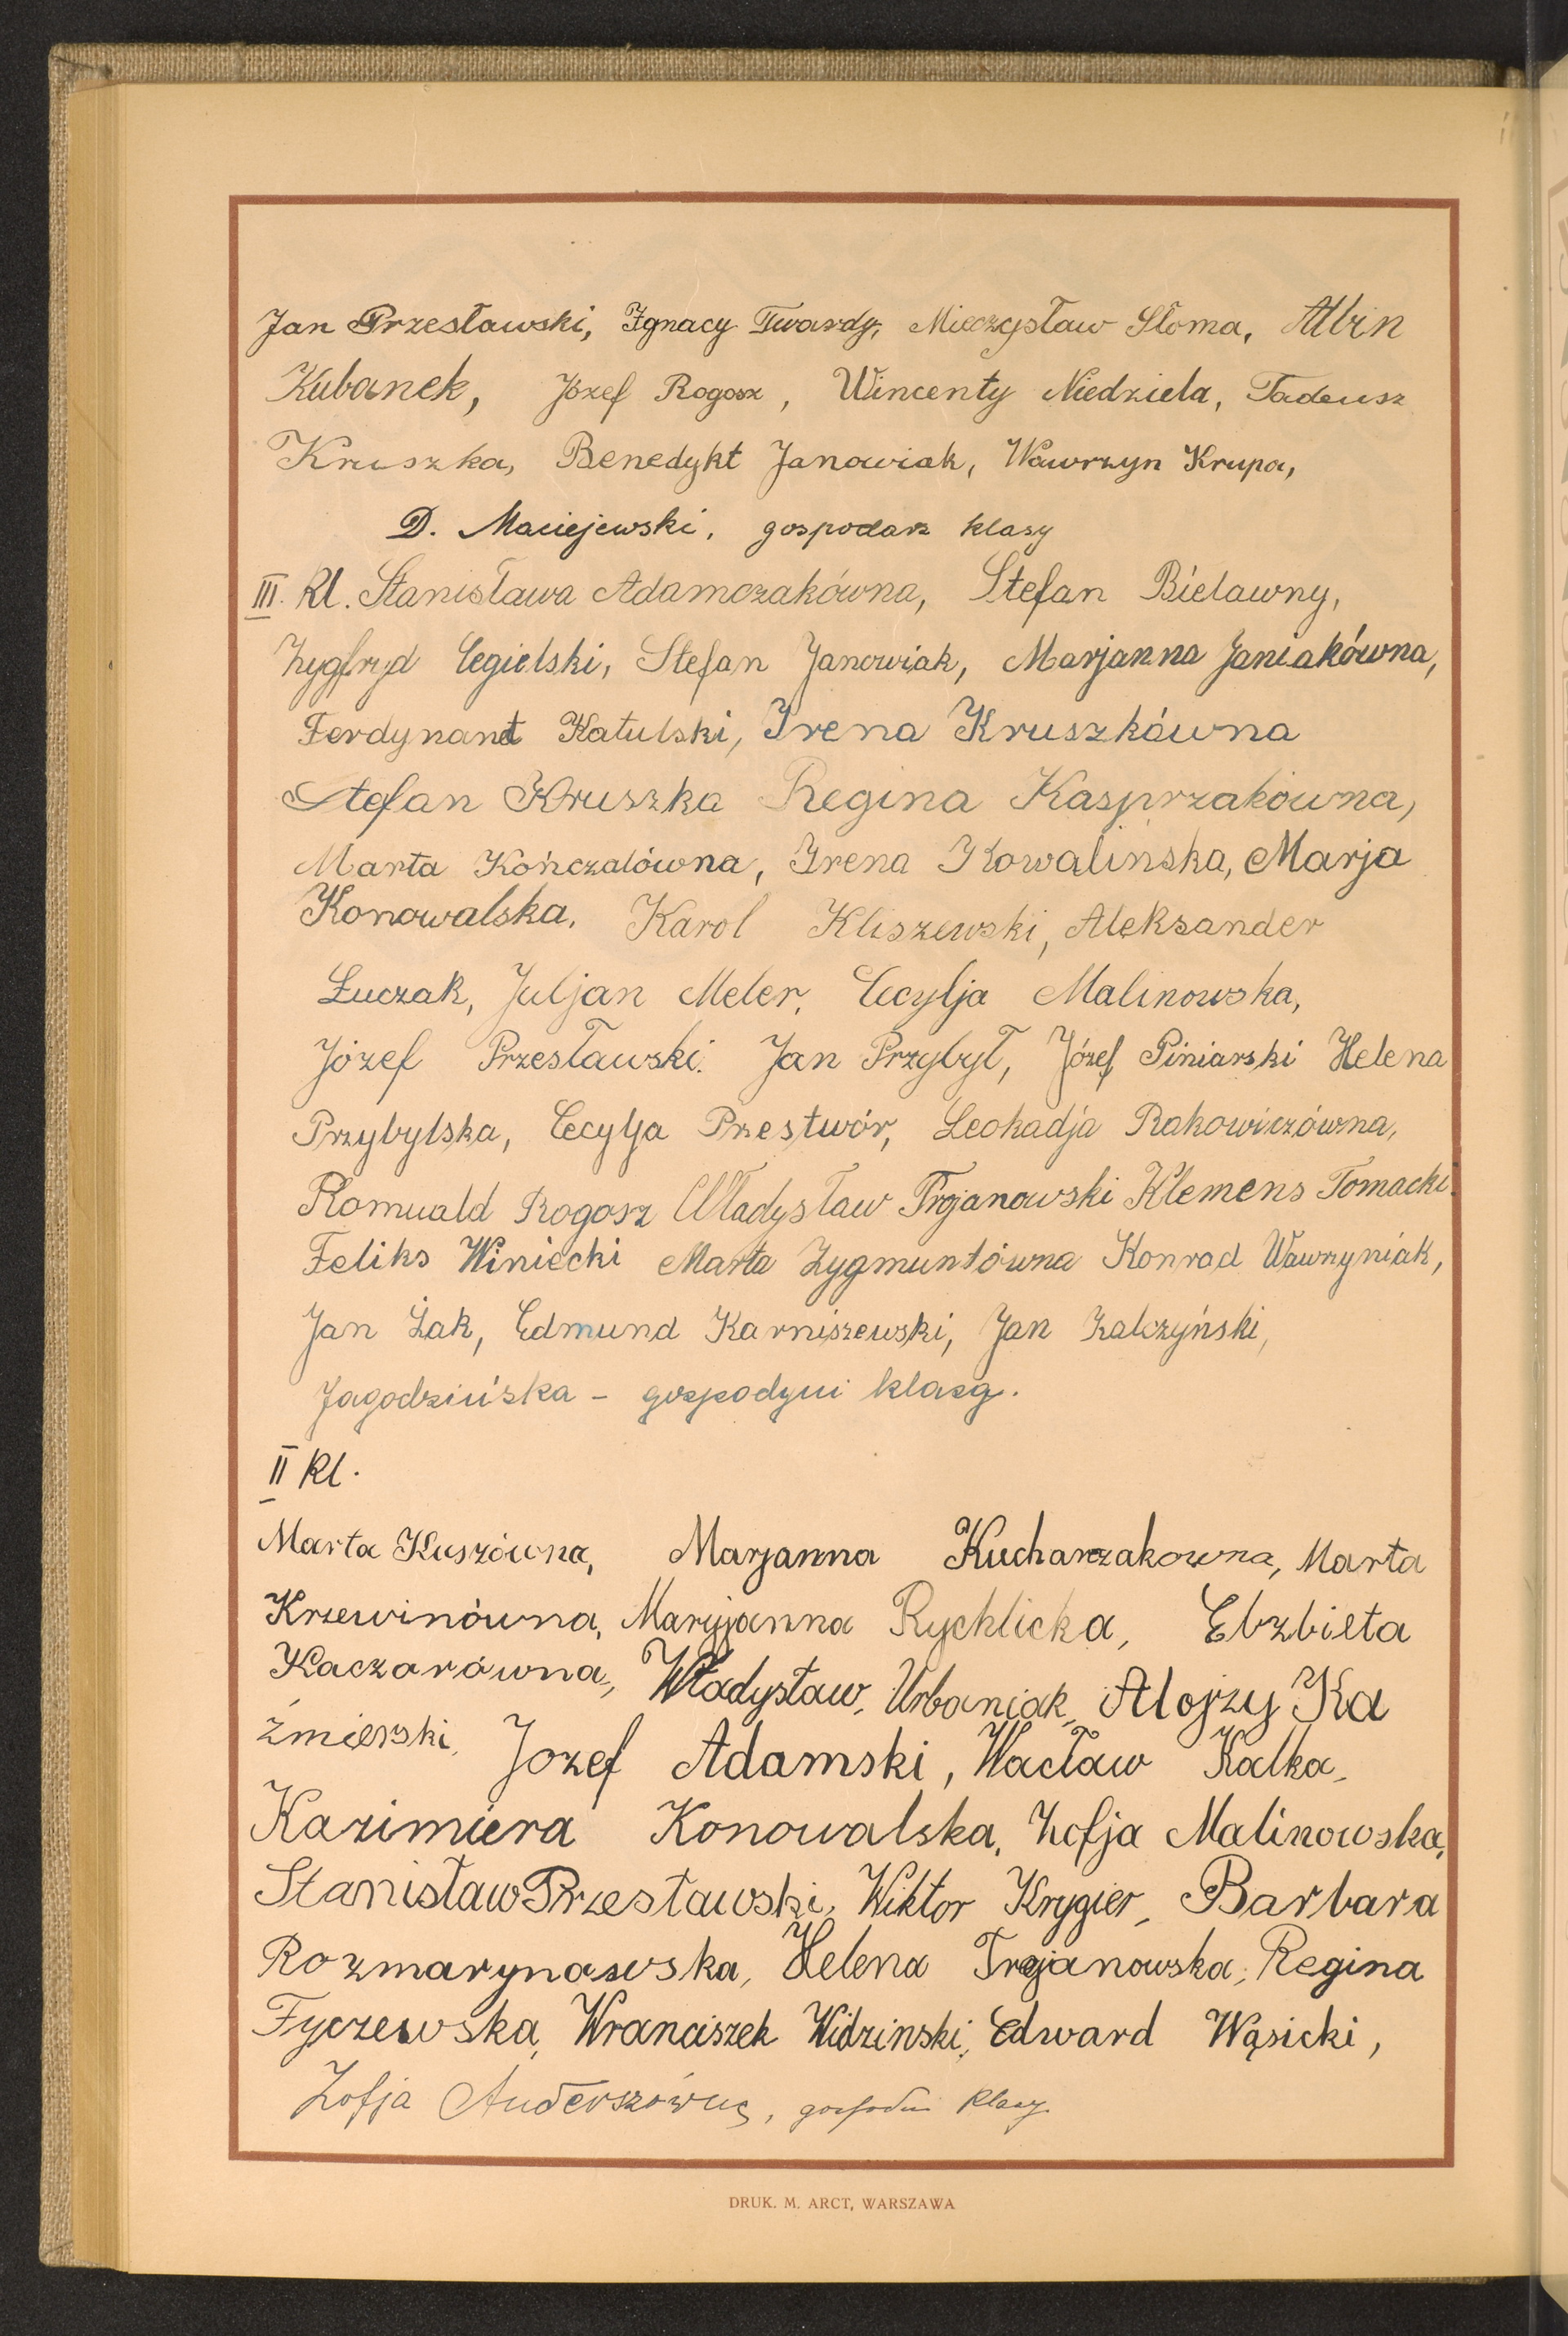 Jan Przesławski, Ignacy Twardy, Mieczysław Słoma, Albin
Kubanek, Józef Rogosz, Wincenty Niedziela, Tadeusz
Kruszka, Benedykt Janowiak, Wawrzyn Krupa,
D. Maciejewski, gospodarz klasy
III. kl. Stanisława Adamczakówna, Stefan Bielawny,
Zygfryd Cegielski, Stefan Janowiak, Marjanna Janiakówna,
Ferdynant Katulski, Irena Kruszkówna
Stefan Kruszka Regina Kasprzakówna,
Marta Kończalówna, Irena Kowalińska, Marja
Konowalska, Karol Kliszewski, Aleksander
Łuczak, Juljan Meler, Cecylja Malinowska,
Józef Przesławski. Jan Przybył, Józef Piniarski Helena
Przybylska, Cecylja Przestwór, Leokadja Rakowiczówna,
Romuald Rogosz Władysław Trojanowski Klemens Tomacki
Feliks Winiecki Marta Zygmuntówna Konrad Wawrzyniak,
Jan Żak, Edmund Karniszewski, Jan Kalczyński,
Jagodzińska - gospodyni klasy.
II kl.
Marta Kuszówna, Marjanna Kucharzakowna, Marta
Krzewinówna, Maryjanna Rychlicka, Elzbieta
Kaczorówna, Władysław, Urbaniak, Alojzy Ka
źmierski, Jozef Adamski, Wacław Kalka,
Kazimiera Konowalska, Zofja Malinowska,
Stanisław Przesławski, Wiktor Krygier, Barbara
Rozmarynowska, Helena Trojanowska, Regina
Fyczewska, Wranciszek Widzinski, Edward Wąsicki,
Zofja Anderszówna, gospodyni klasy
DRUK. M. ARCT, WARSZAWA